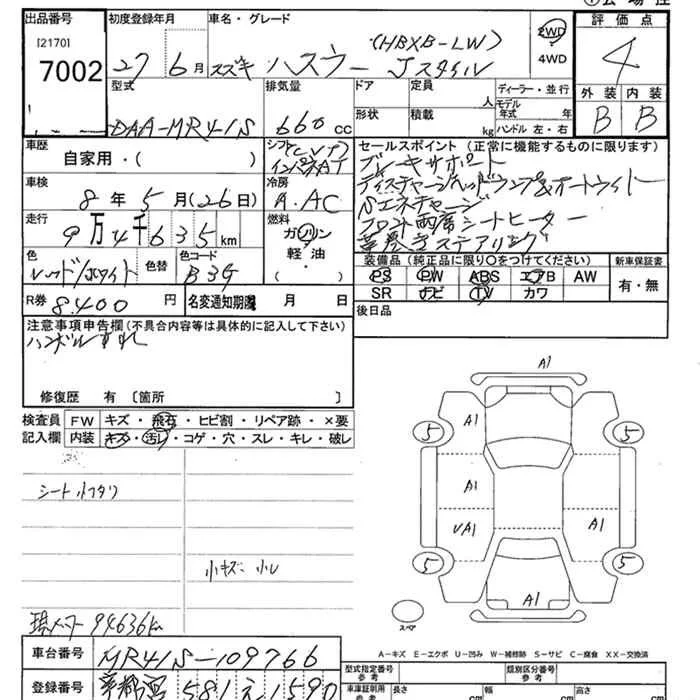 出品番号
[2170]
7002
初度登録年月
27 6月
車名・グレード
スズキ ハスラー Jスタイル
(HBXB-LW)
2WD
4WD
評価点
4
外装 内装
B B
型式
DAA-MR41S
排気量
660 cc
ドア
形状
定員
人
積載
kg
ディーラー・並行
モデル年式 年
ハンドル 左・右
車歴
自家用・( )
シフト(CVT)
インパネAT
冷房
A.AC
車検
8年5月(26日)
走行
9万4千635km
燃料
ガソリン
軽油・
( )
色
レッド/ホワイト
色替
色コード
B3G
R券 8.400 円
名変通知期限 月 日
セールスポイント (正常に機能するものに限ります)
ブレーキサポート
ディスチャージヘッドランプ&オートライト
Sエネチャージ
フロント両席シートヒーター
革巻きステアリング
装備品 (純正品に限り〇をつけてください)
PS PW ABS エアB AW
SR ナビ TV カワ
新車保証書
有・無
後日品
注意事項申告欄(不具合内容等は具体的に記入して下さい)
ハンドルすれ
修復歴 有 〔箇所 〕
検査員記入欄
FW キズ・飛石・ヒビ割・リペア跡・×要
内装 キズ・汚レ・コゲ・穴・スレ・キレ・破レ
シート
小キズ 小
現メーター 94636km
車台番号 MR41S-109766
登録番号 宇都宮 581 え 1590
A1
A1
5
5
A1
UA1
A1
5
5
A1
スペア
A-キズ E-エクボ U-凹み W-補修跡 S-サビ C-腐食 XX-交換済
型式指定番号 参考
類別区分番号 参考
車庫証明用
参考
長さ cm
幅 cm
高さ cm